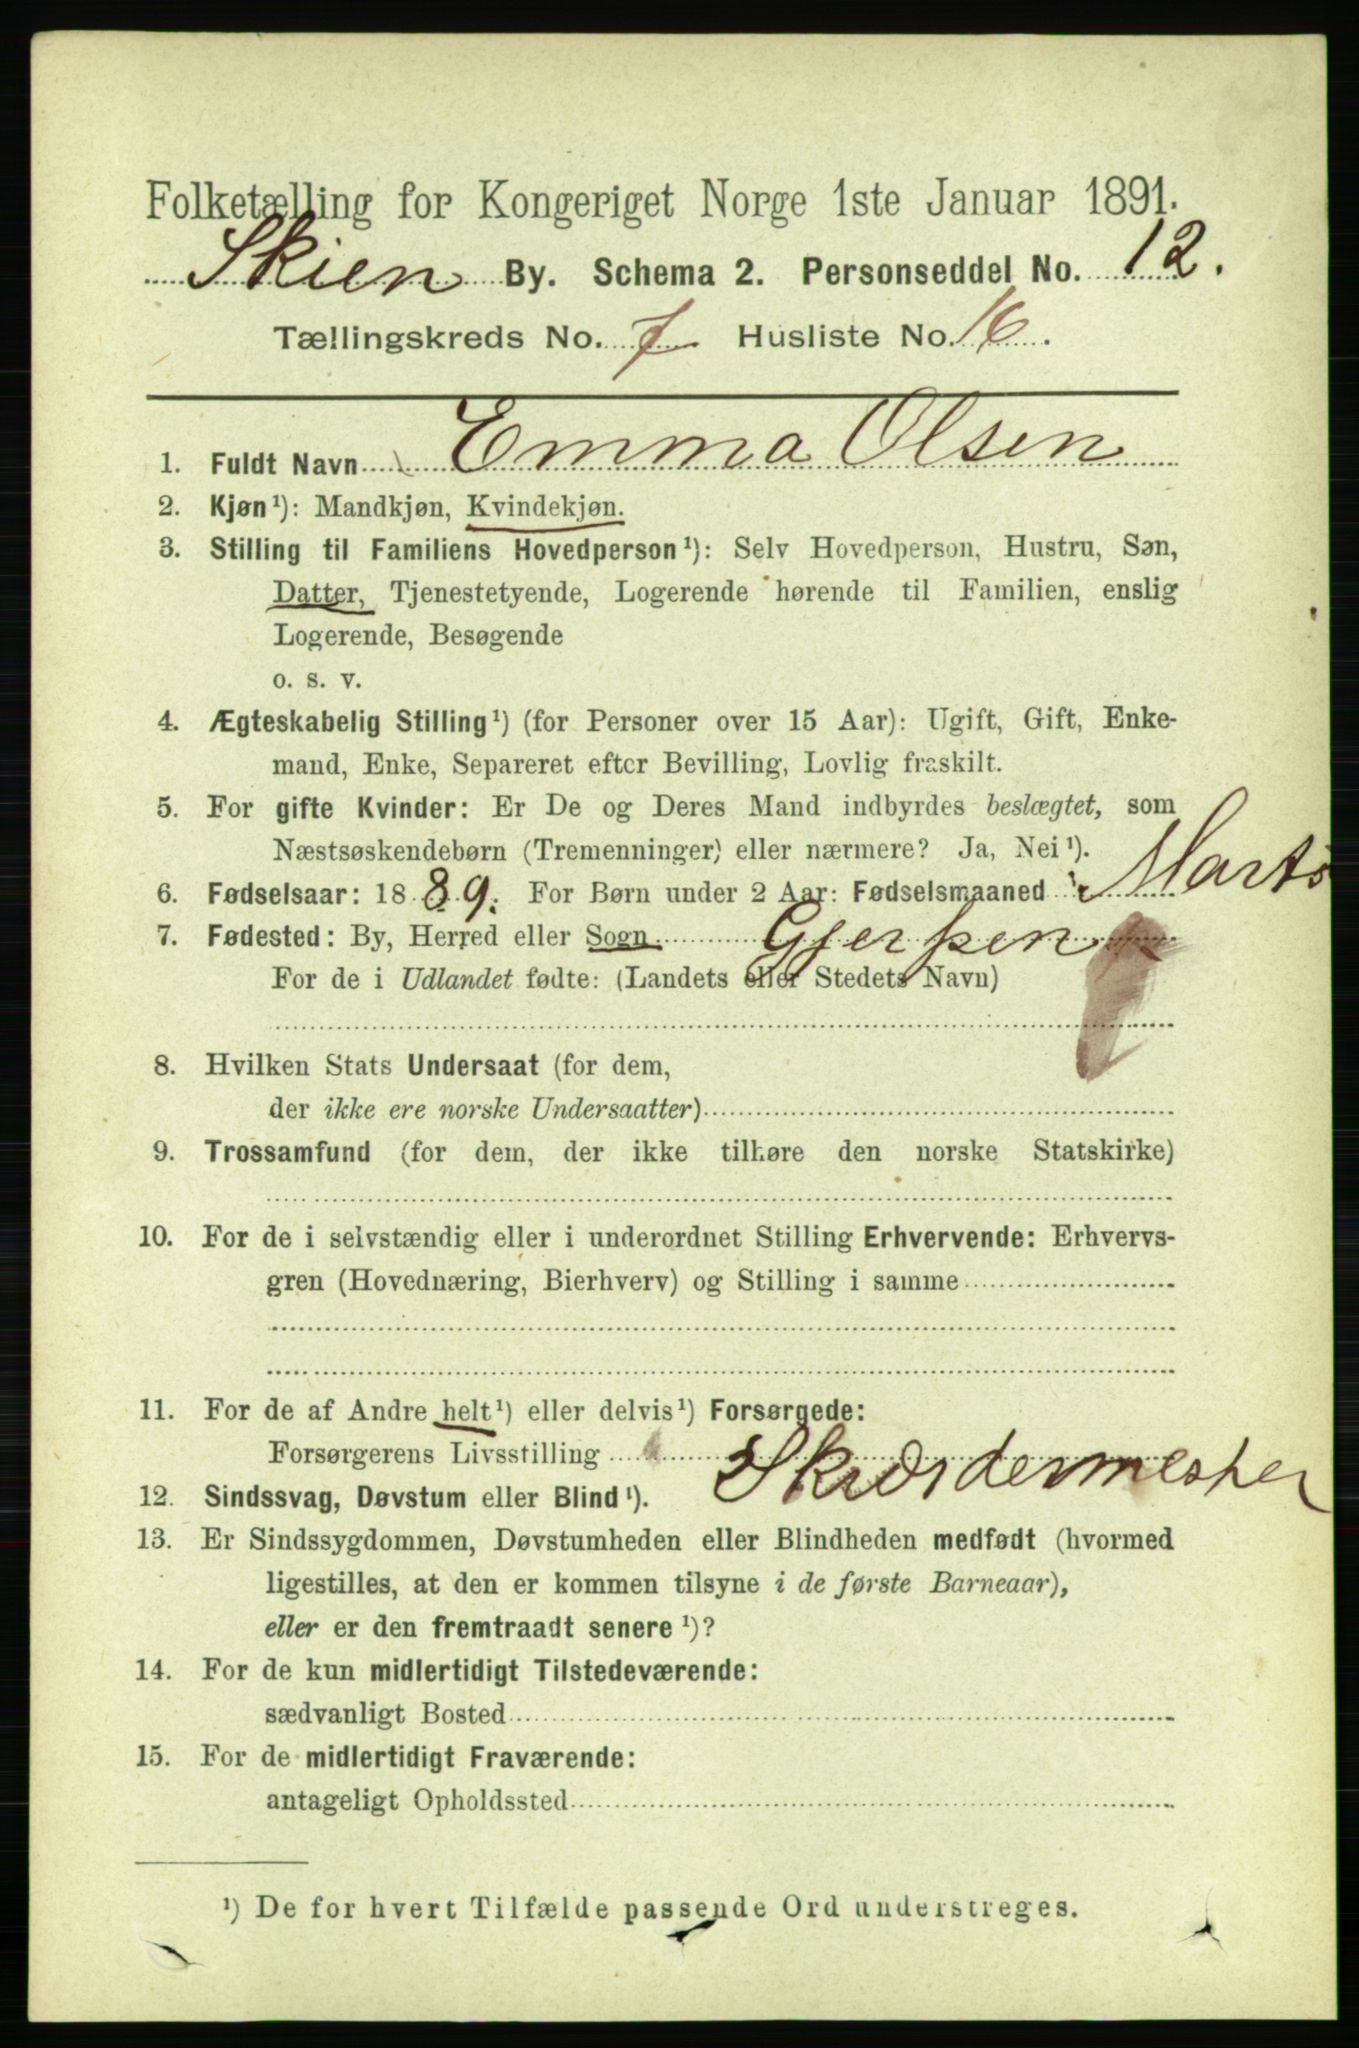 Folketælling for Kongeriget Norge 1ste Januar 1891.
Skien By. Schema 2. Personseddel No. 12.
Tællingskreds No. 7 Husliste No. 16.
1. Fuldt Navn Emma Olsen
2. Kjøn¹): Mandkjøn, Kvindekjøn.
3. Stilling til Familiens Hovedperson¹): Selv Hovedperson, Hustru, Søn,
Datter, Tjenestetyende, Logerende hørende til Familien, enslig
Logerende, Besøgende
o. s. v.
4. Ægteskabelig Stilling¹) (for Personer over 15 Aar): Ugift, Gift, Enke-
mand, Enke, Separeret efter Bevilling, Lovlig fraskilt.
5. For gifte Kvinder: Er De og Deres Mand indbyrdes beslægtet, som
Næstsøskendebørn (Tremenninger) eller nærmere? Ja, Nei¹).
6. Fødselsaar: 1889. For Børn under 2 Aar: Fødselsmaaned Marts
7. Fødested: By, Herred eller Sogn Gjerpen
For de i Udlandet fødte: (Landets eller Stedets Navn)
8. Hvilken Stats Undersaat (for dem,
der ikke ere norske Undersaatter)
9. Trossamfund (for dem, der ikke tilhøre den norske Statskirke)
10. For de i selvstændig eller i underordnet Stilling Erhvervende: Erhvervs-
gren (Hovednæring, Bierhverv) og Stilling i samme
11. For de af Andre helt¹) eller delvis¹) Forsørgede:
Forsørgerens Livsstilling Skrædermester
12. Sindssvag, Døvstum eller Blind¹).
13. Er Sindssygdommen, Døvstumheden eller Blindheden medfødt (hvormed
ligestilles, at den er kommen tilsyne i de første Barneaar),
eller er den fremtraadt senere¹)?
14. For de kun midlertidigt Tilstedeværende:
sædvanligt Bosted
15. For de midlertidigt Fraværende:
antageligt Opholdssted
¹) De for hvert Tilfælde passende Ord understreges.